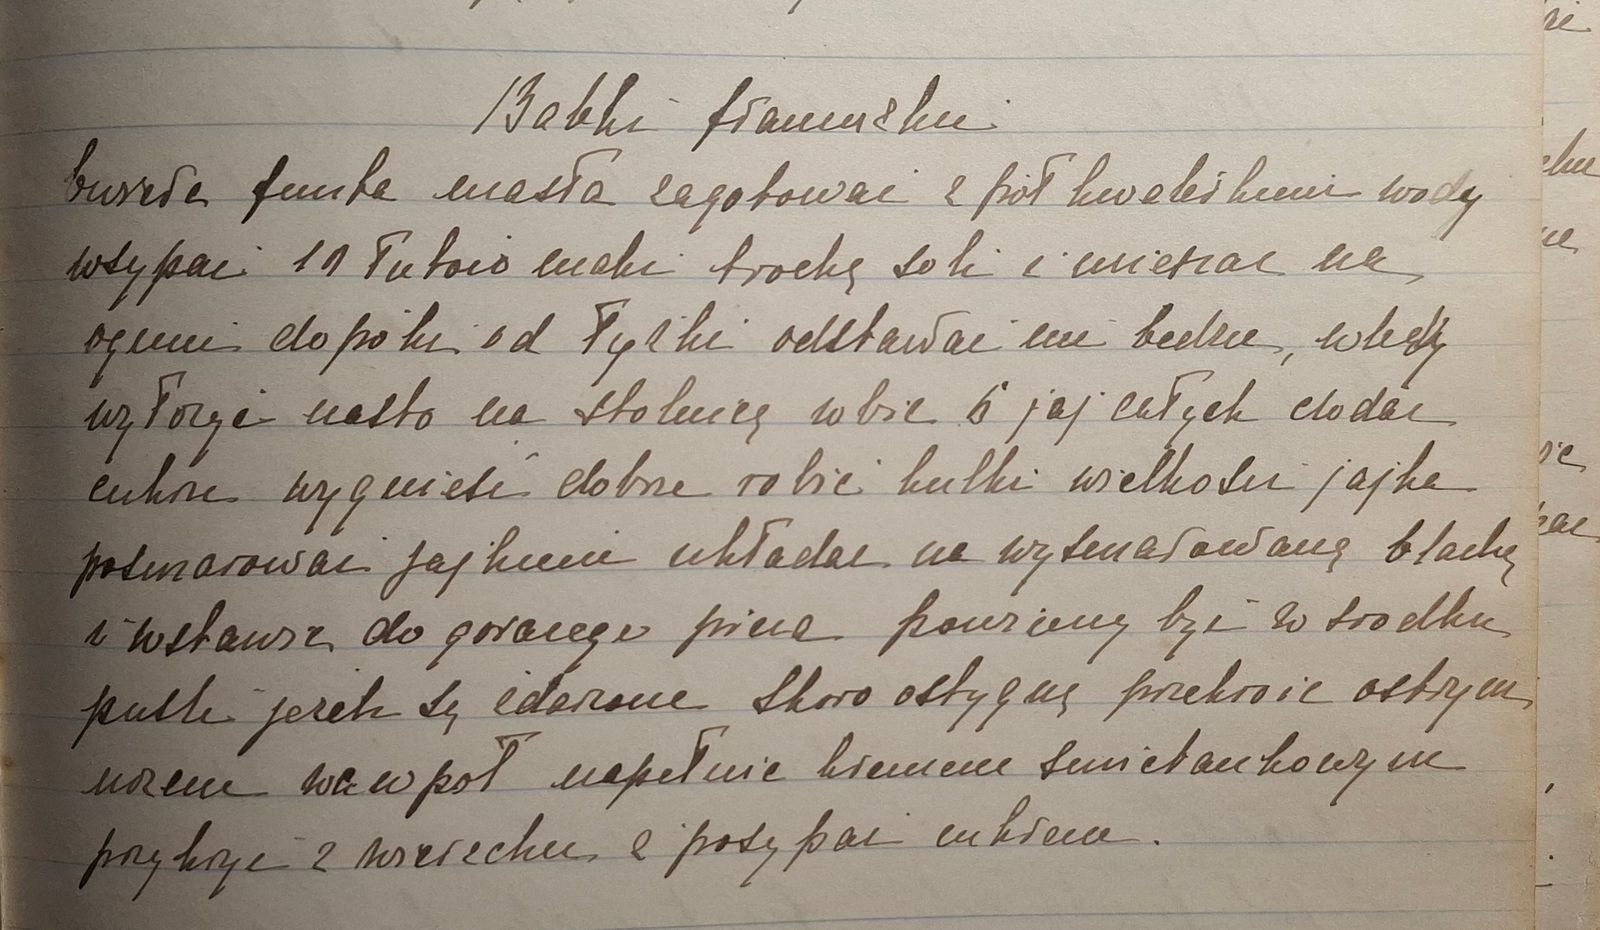 Babki francuzkie
funta masła zagotować z pół kwaterkami wody
wsypać 11 łutów mąki trochę soli i mieszać na
ogniu dopóki od łyżki odstawać nie będzie, wtedy
wyłożyć masto na stolnicę wbić 6 jaj całych dodać
cukru wygnieść dobrze robić kulki wielkości jajka
posmarować jajkiem układać na wysmarowaną blachę
i wstawić do gorącego pieca powinny być w środku
puste jeżeli są Skoro ostygną przekroić ostrym
nożem wewpół napełnić kremem śmietankowym
przykryć z wierzchu i posypać cukrem.